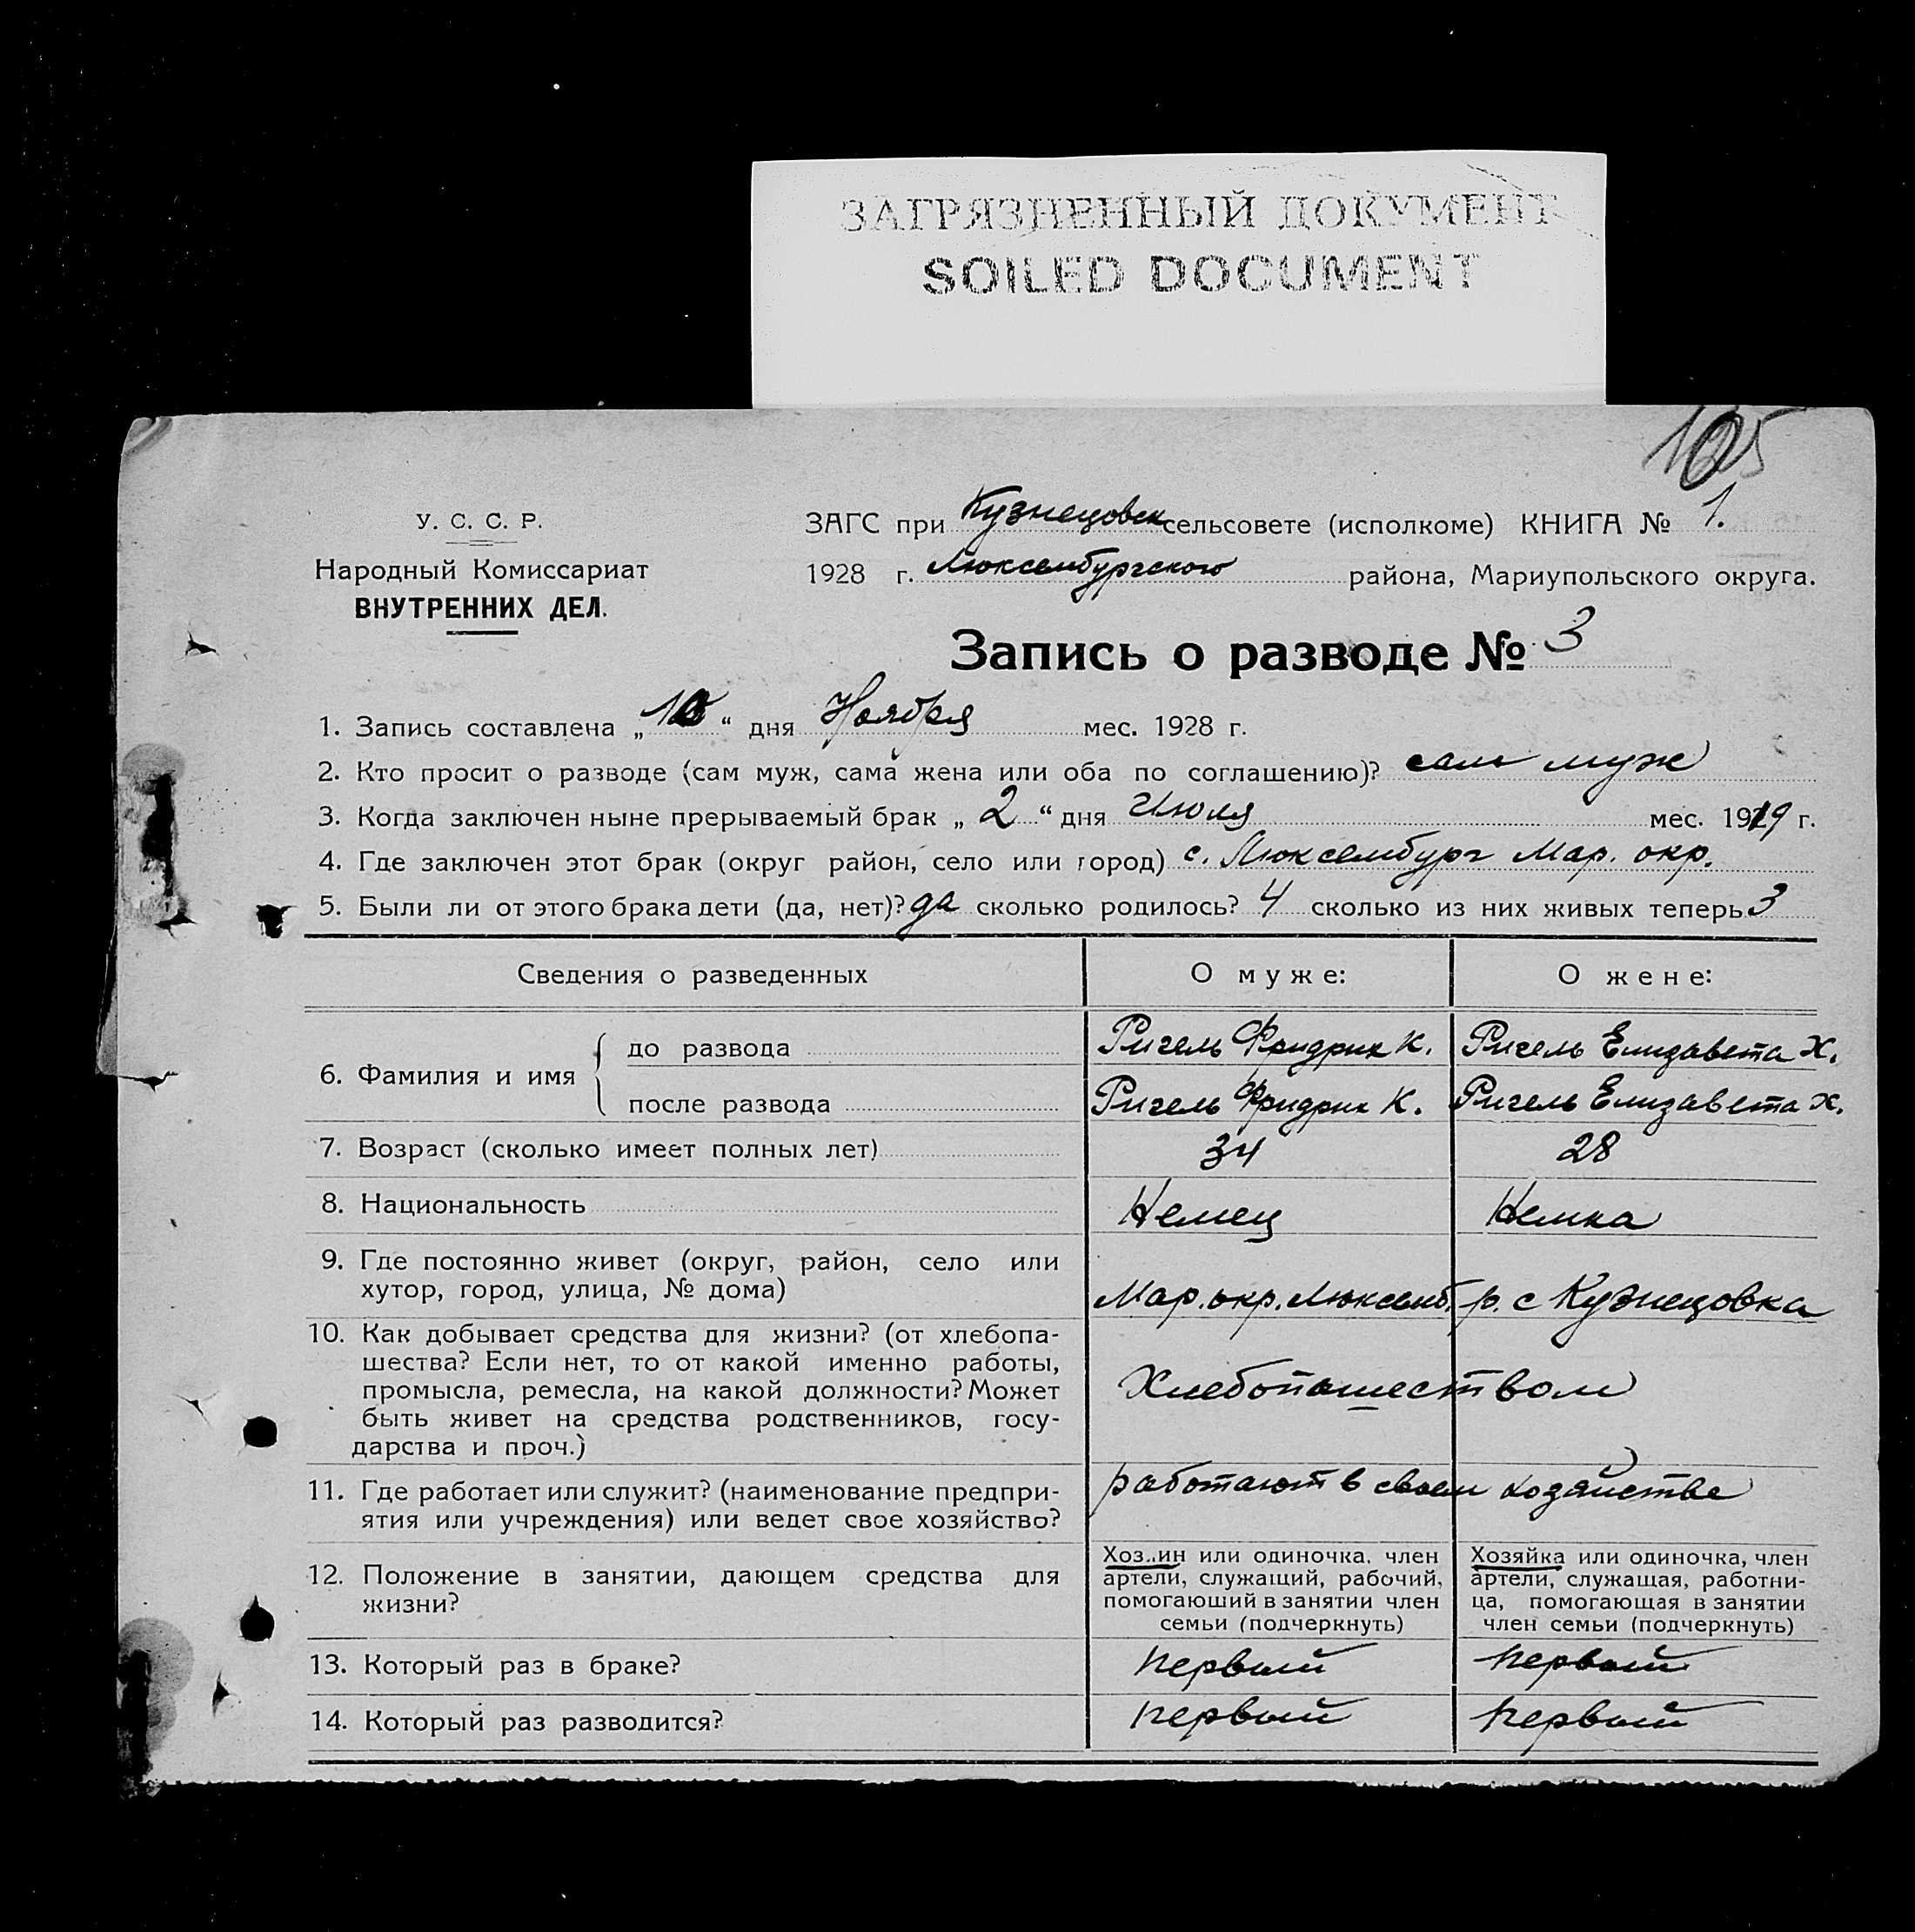 ЗАГРЯЗНЕННЫЙ ДОКУМЕНТ
SOILED DOCUMENT
У. С. С. Р.
Народный Комиссариат
ВНУТРЕННИХ ДЕЛ.
ЗАГС при Кузнецовск сельсовете (исполкоме) КНИГА № 1.
1928 г. Люксембургского района, Мариупольского округа.
Запись о разводе № 3
1. Запись составлена „ “ дня Ноября мес. 1928 г.
2. Кто просит о разводе (сам муж, сама жена или оба по соглашению)? сам муж
3. Когда заключен ныне прерываемый брак „ 2 “ дня Июля мес. 1919 г.
4. Где заключен этот брак (округ район, село или город) с. Люксембург Мар. окр.
5. Были ли от этого брака дети (да, нет)? да сколько родилось? 4 сколько из них живых теперь 3
Сведения о разведенных О муже: О жене:
6. Фамилия и имя
до развода Ригель Фридрих К. Ригель Елизавета Х.
после развода Ригель Фридрих К. Ригель Елизавета Х.
7. Возраст (сколько имеет полных лет) 34 28
8. Национальность Немец Немка
9. Где постоянно живет (округ, район, село или
хутор, город, улица, № дома) Мар. окр. Люксемб. р. с Кузнецовка
10. Как добывает средства для жизни? (от хлебопа-
шества? Если нет, то от какой именно работы,
промысла, ремесла, на какой должности? Может
быть живет на средства родственников, госу-
дарства и проч.)
Хлебопашеством
11. Где работает или служит? (наименование предпри-
ятия или учреждения) или ведет свое хозяйство?
работают в своем хозяйстве
12. Положение в занятии, дающем средства для
жизни?
Хоз..ин или одиночка, член
артели, служащий, рабочий,
помогающий в занятии член
семьи (подчеркнуть)
Хозяйка или одиночка, член
артели, служащая, работни-
ца, помогающая в занятии
член семьи (подчеркнуть)
13. Который раз в браке? первый первый
14. Который раз разводится? первый первый